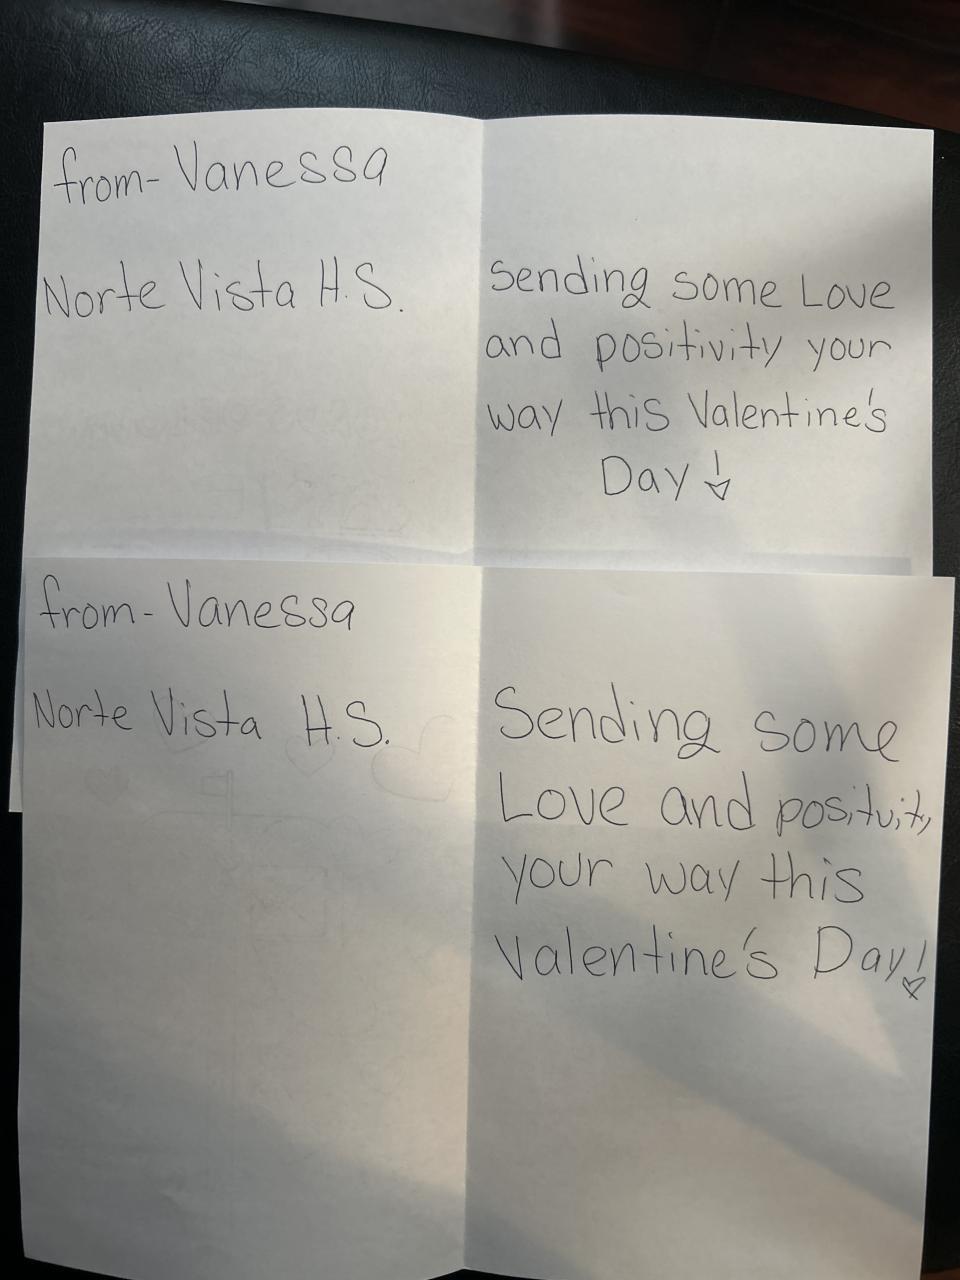 from- Vanessa
Norte Vista H.S.
Sending some Love
and positivity your
way this Valentine's
Day!
from- Vanessa
Norte Vista H.S.
Sending some
Love and positivity
your way this
Valentine's Day!